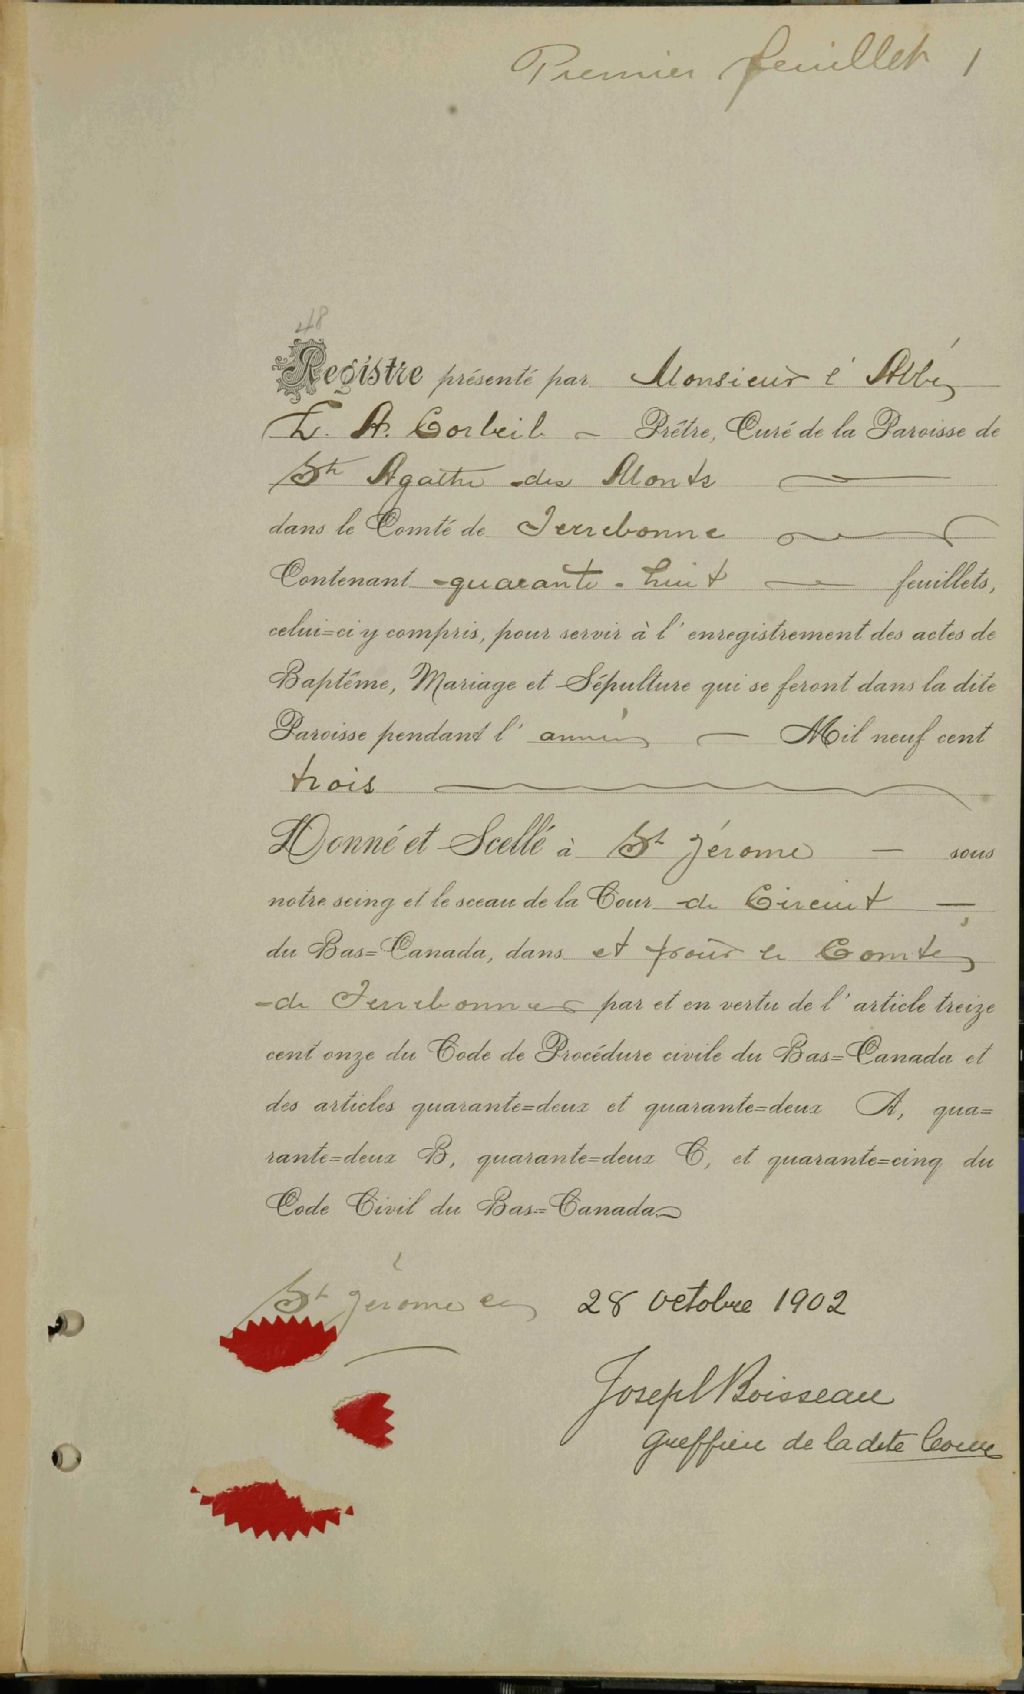 Premier feuillet 1
48
Registre présenté par Monsieur l'Abbé
A. Corbeil - Prêtre, Curé de la Paroisse de
Ste Agathe des Monts
dans le Comté de Terrebonne
Contenant quarante-huit feuillets,
celui=ci y compris, pour servir à l'enregistrement des actes de
Baptême, Mariage et Sépulture qui se feront dans la dite
Paroisse pendant l'année — Mil neuf cent
trois
Donné et Scellé à St Jérome — sous
notre seing et le sceau de la Cour de Circuit —
du Bas=Canada, dans et pour le Comté
de Terrebonne par et en vertu de l'article treize
cent onze du Code de Procédure civile du Bas=Canada et
des articles quarante=deux et quarante=deux A, qua=
rante=deux B, quarante=deux C, et quarante=cinq du
Code Civil du Bas=Canada
St Jérome ce 28 octobre 1902
Joseph Boisseau
Greffier de la dite Cour